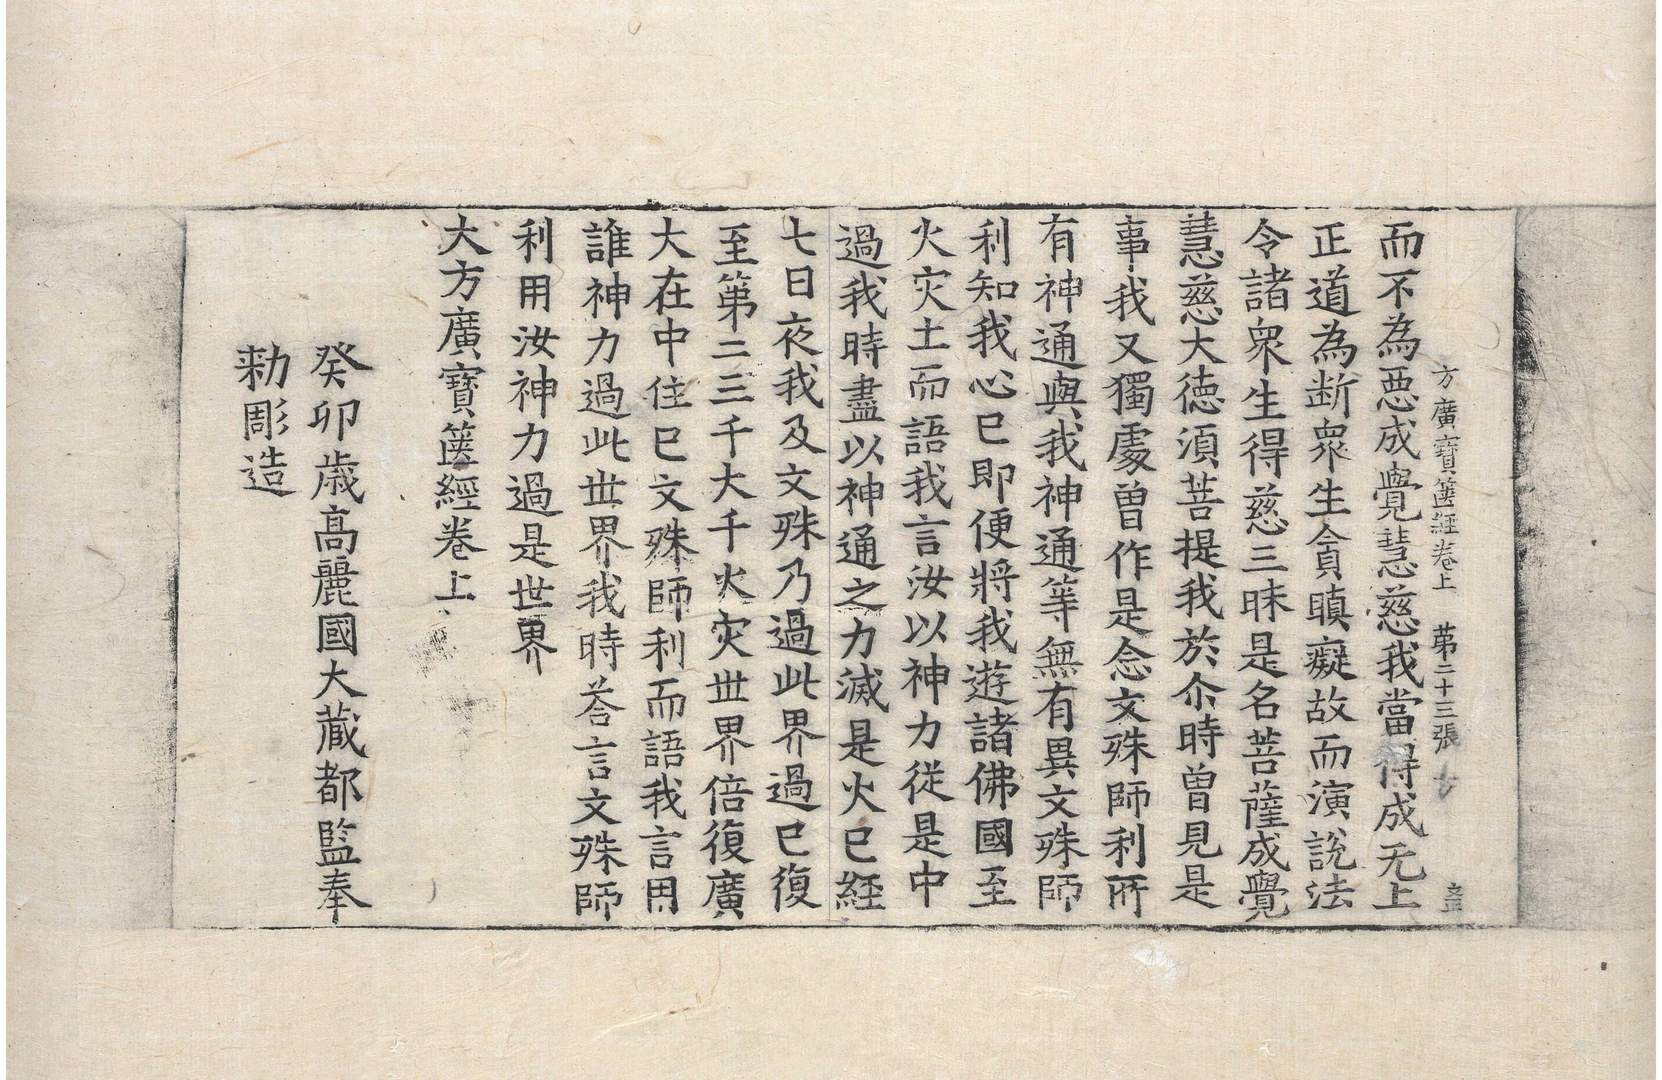 方廣寶篋經卷上 苐二十三張
而不為惡成覺慧慈我當得成无上
正道為断眾生貪瞋癡故而演說法
令諸眾生得慈三昧是名菩薩成覺
慧慈大德湏菩提我於尒時曽見是
事我又獨處曽作是念文殊師利所
有神通與我神通等無有異文殊師
利知我心已即便將我遊諸佛國至
火灾土而語我言汝以神力從是中
過我時盡以神通之力滅是火已經
七日夜我及文殊乃過此界過已復
至第二三千大千火灾世界倍復廣
大在中住已文殊師利而語我言用
誰神力過此世界我時荅言文殊師
利用汝神力過是世界
大方廣寶篋經卷上
癸卯歳高麗國大藏都監奉
勑彫造